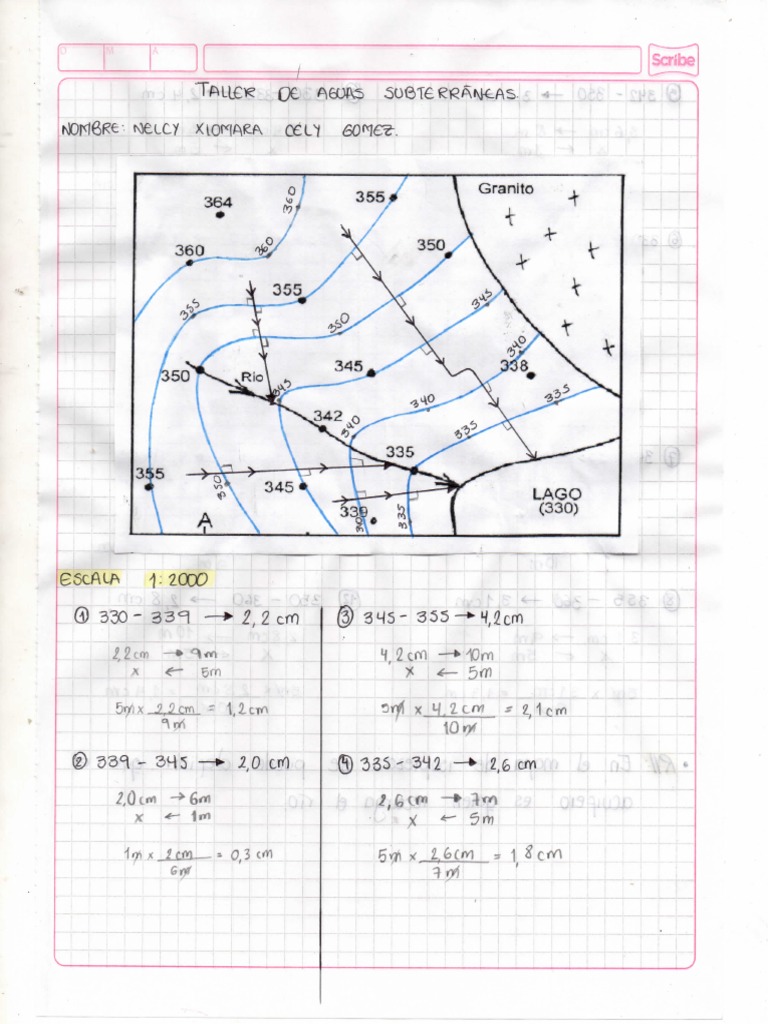 O M A
Scribe
TALLER DE AGUAS SUBTERRÁNEAS.
NOMBRE: NELCY XIOMARA CELY GOMEZ.
364
360
355
Granito
360
360
350
355
355
350
345
350
Rio
345
345
340
338
342
340
340
335
335
335
355
350
345
339
335
LAGO
(330)
A
ESCALA 1:2000
① 330 - 339 → 2,2 cm
2,2cm → 9m
x ← 5m
5m x 2,2cm / 9m = 1,2 cm
② 339 - 345 → 2,0 cm
2,0cm → 6m
x ← 1m
1m x 2cm / 6m = 0,3 cm
③ 345 - 355 → 4,2cm
4,2cm → 10m
x ← 5m
5m x 4,2cm / 10m = 2,1cm
④ 335 - 342 → 2,6 cm
2,6cm → 7m
x ← 5m
5m x 2,6cm / 7m = 1,8cm